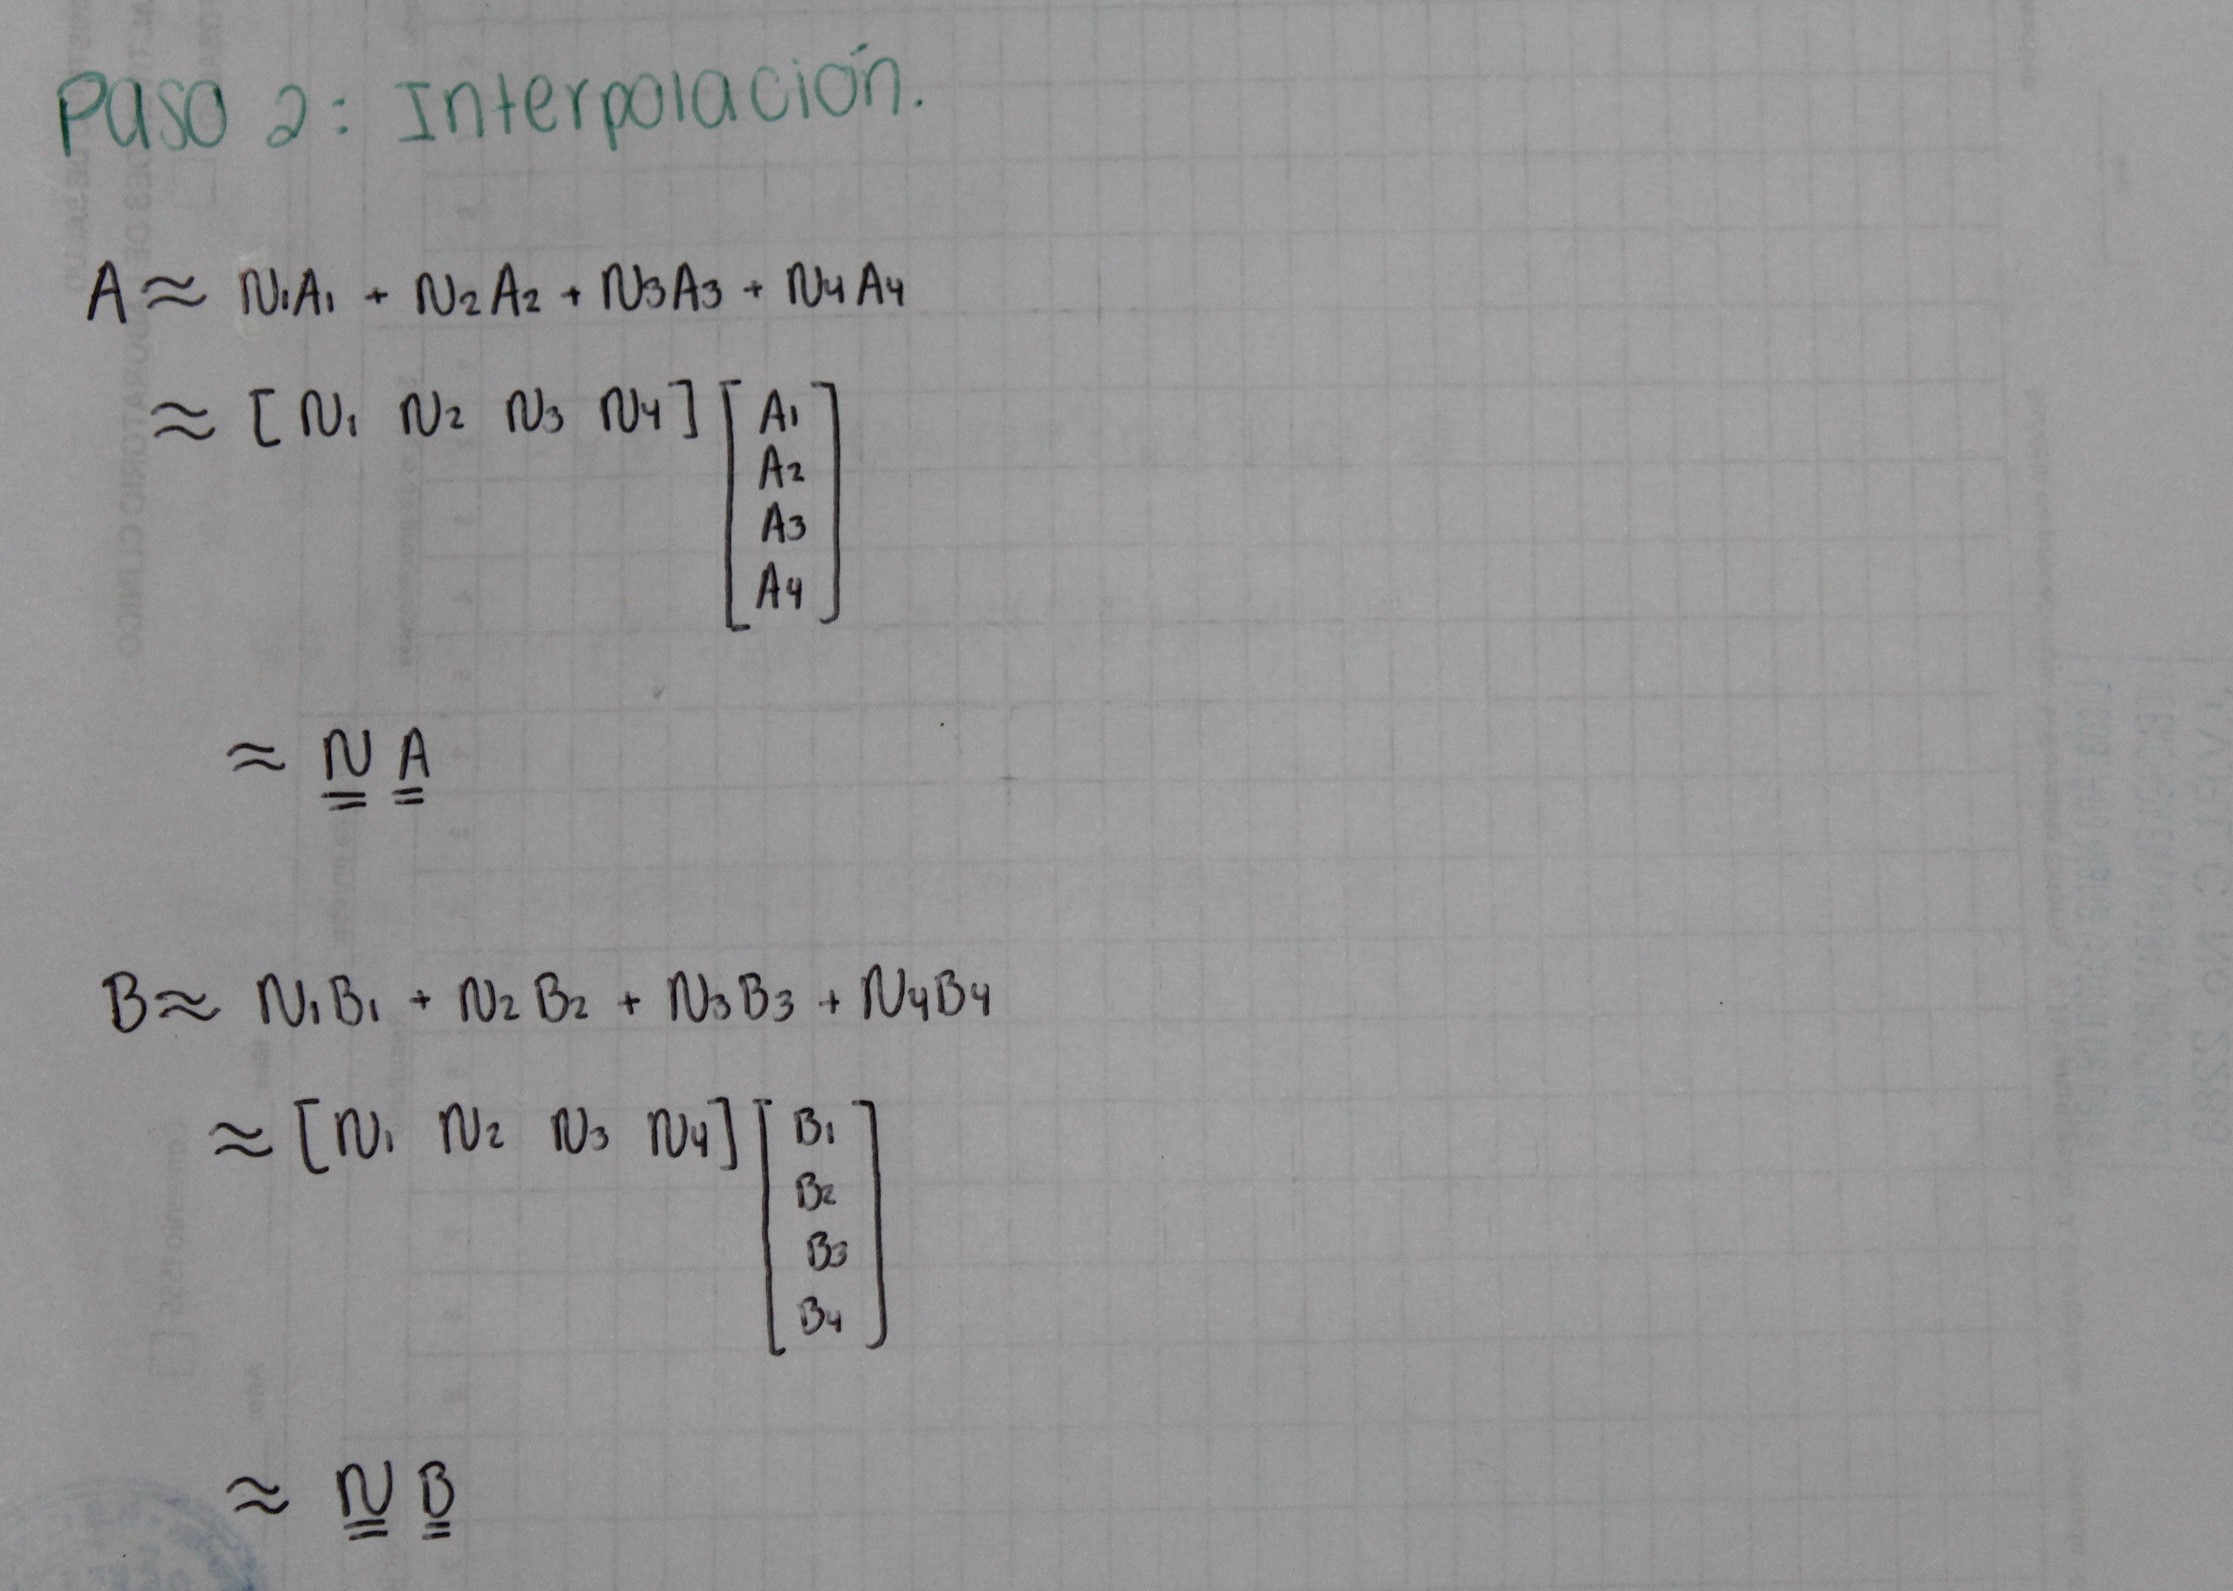 Paso 2: Interpolación.
A ≈ N1A1 + N2A2 + N3A3 + N4A4
≈ [ N1 N2 N3 N4 ] [ A1
A2
A3
A4 ]
≈ N A
B ≈ N1B1 + N2B2 + N3B3 + N4B4
≈ [ N1 N2 N3 N4 ] [ B1
B2
B3
B4 ]
≈ N B